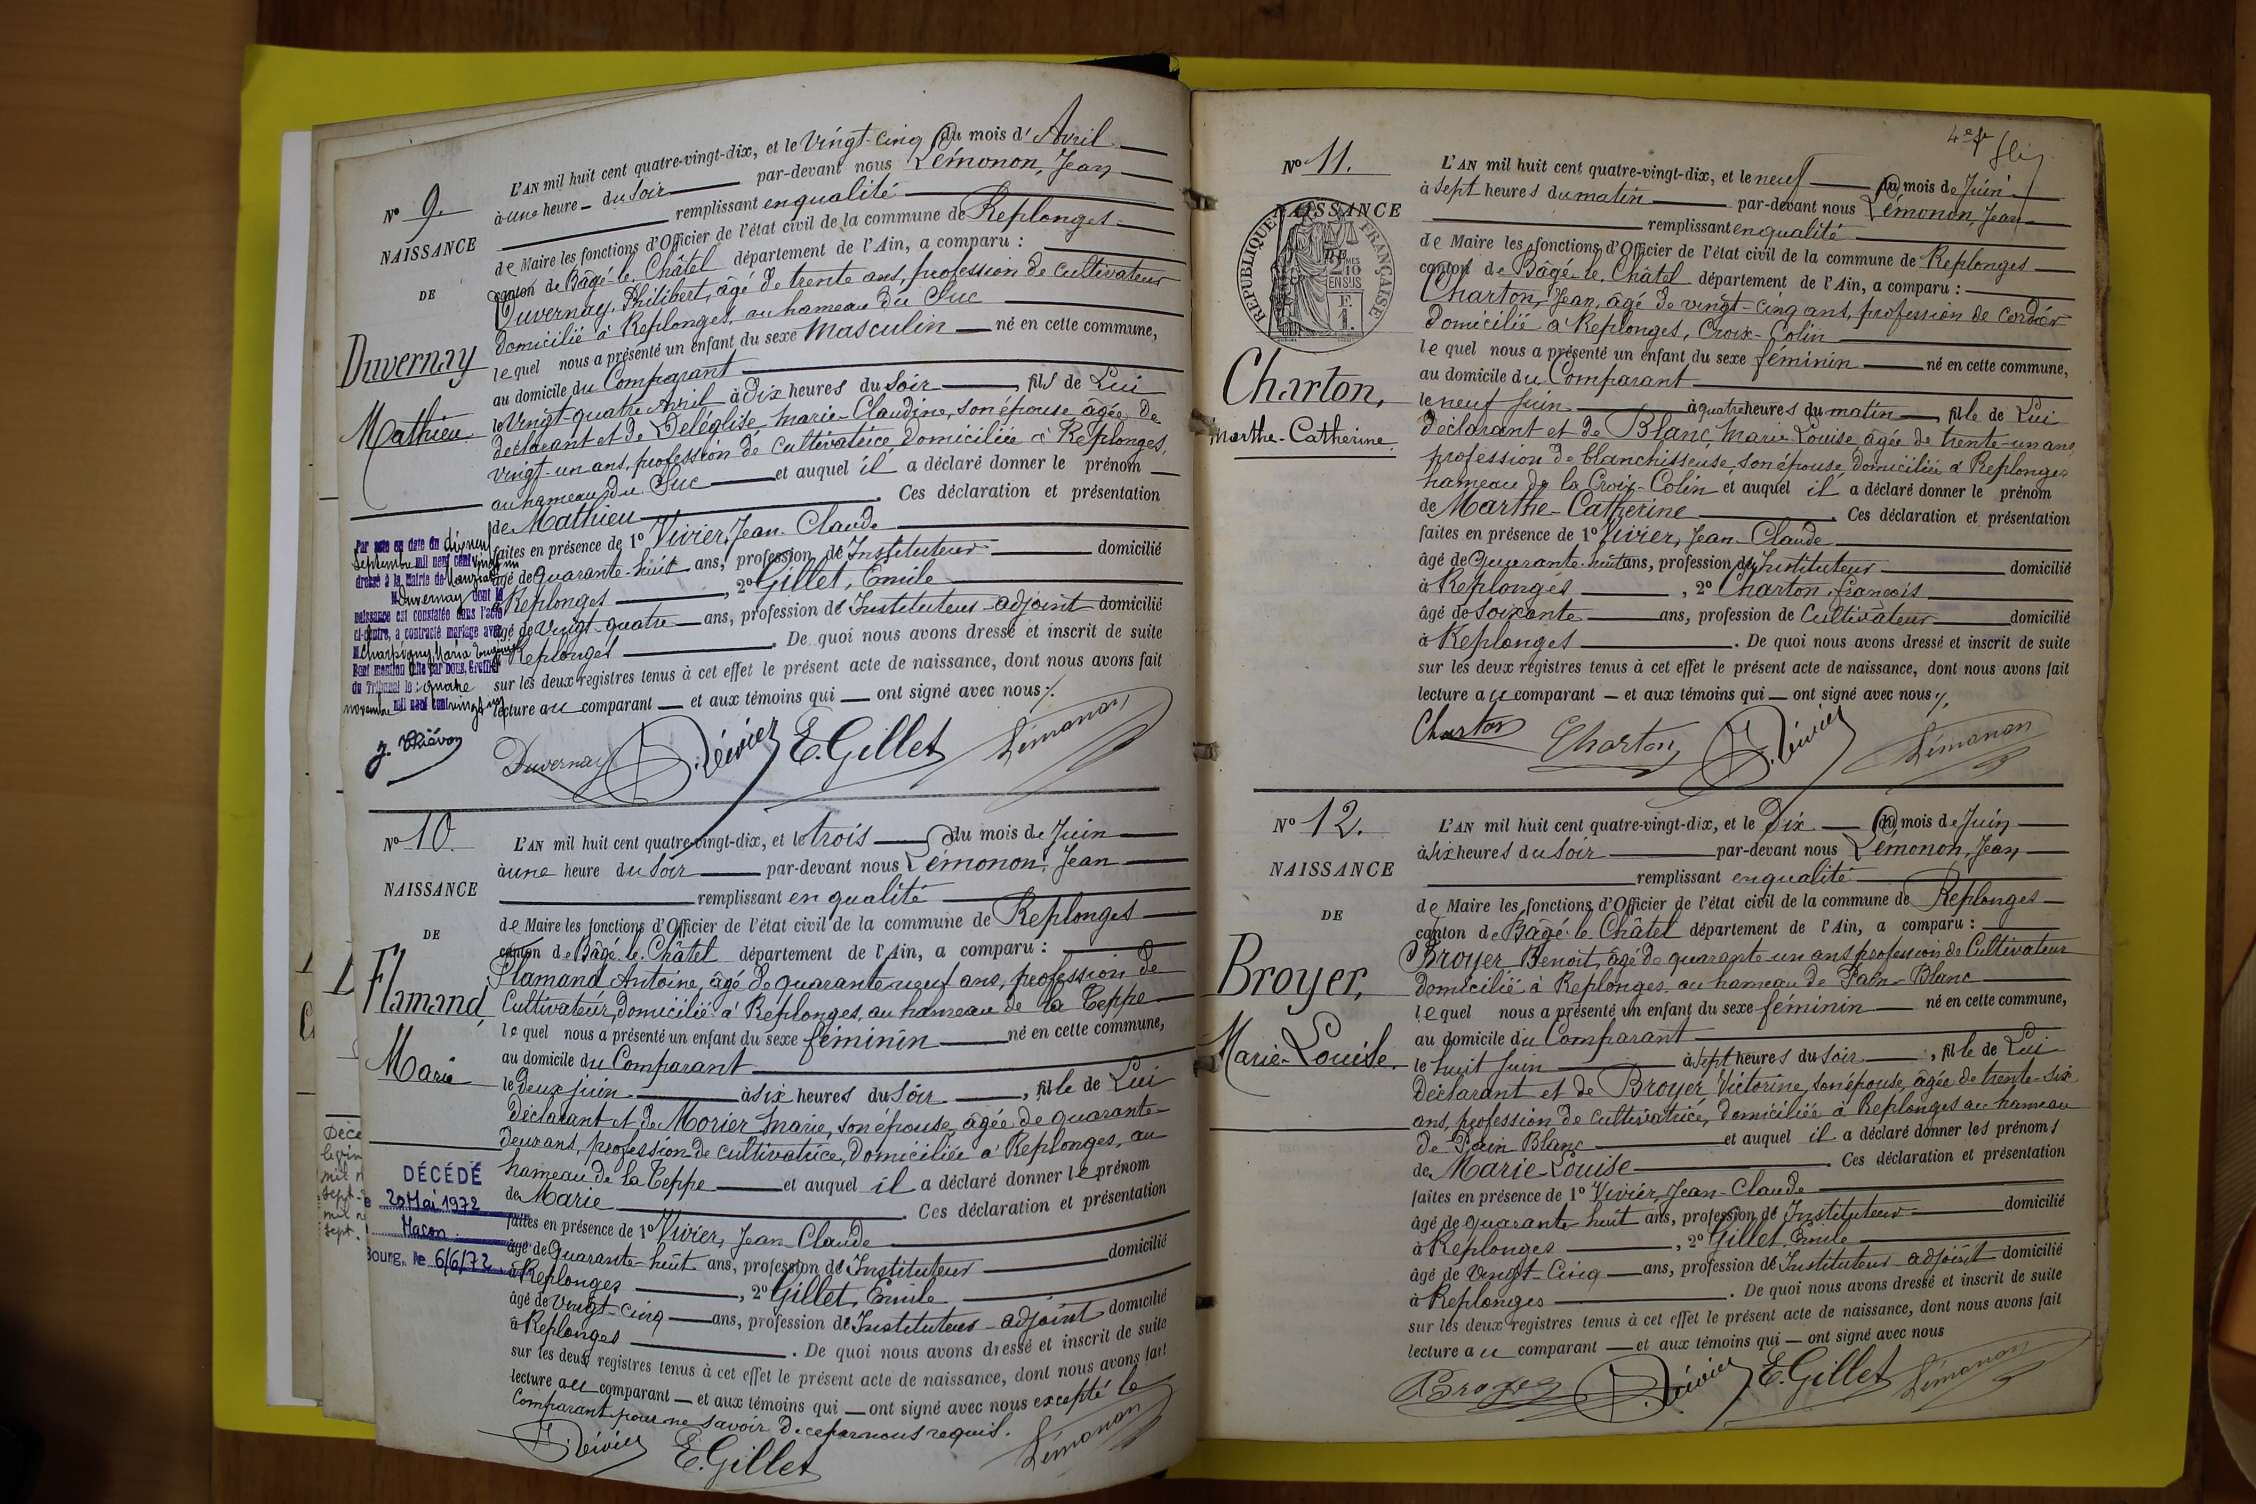 N° 9.
NAISSANCE
DE
Duvernay
Mathieu
L'AN mil huit cent quatre-vingt-dix, et le Vingt-cinq du mois d'Avril
à une heure du soir par-devant nous Lémonon, Jean
remplissant en qualité
de Maire les fonctions d'Officier de l'état civil de la commune de Replonges
canton de Bâgé-le-Châtel département de l'Ain, a comparu :
Duvernay, Philibert, âgé de trente ans, profession de cultivateur
domicilié à Replonges, au hameau du Suc
lequel nous a présenté un enfant du sexe masculin né en cette commune,
au domicile du Comparant
le Vingt-quatre Avril à dix heures du soir, fils de Lui
déclarant et de Deléglise Marie-Claudine, son épouse âgée de
vingt-un ans, profession de cultivatrice domiciliée à Replonges,
au hameau du Suc et auquel il a déclaré donner le prénom
de Mathieu. Ces déclaration et présentation
faites en présence de 1° Vivier, Jean-Claude
âgé de quarante-huit ans, profession de Instituteur domicilié
à Replonges, 2° Gillet, Emile
âgé de Vingt-quatre ans, profession de Instituteur-adjoint domicilié
à Replonges. De quoi nous avons dressé et inscrit de suite
sur les deux registres tenus à cet effet le présent acte de naissance, dont nous avons fait
lecture au comparant et aux témoins qui ont signé avec nous.
Par acte en date du dix neuf
Septembre mil neuf cent vingt un
dressé à la Mairie de
M Duvernay dont la
naissance est constatée dans l'acte
ci-contre, a contracté mariage avec
M Charpigny Maria Eugénie
Dont mention faite par nous, Greffier
du Tribunal le : quatre
novembre mil neuf cent vingt un
Duvernay J. Vivier E. Gillet Lémonon
N° 10.
NAISSANCE
DE
Flamand,
Marie
L'AN mil huit cent quatre-vingt-dix, et le trois du mois de Juin
à une heure du soir par-devant nous Lémonon, Jean
remplissant en qualité
de Maire les fonctions d'Officier de l'état civil de la commune de Replonges
canton de Bâgé-le-Châtel département de l'Ain, a comparu :
Flamand Antoine, âgé de quarante-neuf ans, profession de
Cultivateur, domicilié à Replonges, au hameau de la Teppe
lequel nous a présenté un enfant du sexe féminin né en cette commune,
au domicile du Comparant
le deux juin à six heures du soir, fille de Lui
déclarant et de Morier Marie, son épouse, âgée de quarante-
deux ans, profession de cultivatrice, domiciliée à Replonges, au
hameau de la Teppe et auquel il a déclaré donner le prénom
de Marie. Ces déclaration et présentation
faites en présence de 1° Vivier, Jean-Claude
âgé de quarante-huit ans, profession de Instituteur domicilié
à Replonges, 2° Gillet, Emile
âgé de vingt-cinq ans, profession de Instituteur-adjoint domicilié
à Replonges. De quoi nous avons dressé et inscrit de suite
sur les deux registres tenus à cet effet le présent acte de naissance, dont nous avons fait
lecture au comparant et aux témoins qui ont signé avec nous excepté le
Comparant pour ne savoir de ce par nous requis.
DÉCÉDÉ
20 Mai 1972
Macon
Bourg, le 6/6/72
J. Vivier E. Gillet Lémonon
N° 11.
NAISSANCE
DE
RÉPUBLIQUE FRANÇAISE
2 10
EN SUS
Charton,
Marthe-Catherine
L'AN mil huit cent quatre-vingt-dix, et le neuf du mois de Juin
à sept heures du matin par-devant nous Lémonon, Jean
remplissant en qualité
de Maire les fonctions d'Officier de l'état civil de la commune de Replonges
canton de Bâgé-le-Châtel département de l'Ain, a comparu :
Charton, Jean, âgé de vingt-cinq ans, profession de cordier
domicilié à Replonges, Croix-Colin
lequel nous a présenté un enfant du sexe féminin né en cette commune,
au domicile du Comparant
le neuf juin à quatre heures du matin, fille de Lui
déclarant et de Blanc, Marie-Louise, âgée de trente-un ans,
profession de blanchisseuse, son épouse, domiciliée à Replonges
hameau de la Croix-Colin et auquel il a déclaré donner le prénom
de Marthe-Catherine. Ces déclaration et présentation
faites en présence de 1° Vivier, Jean-Claude
âgé de Quarante-huit ans, profession de Instituteur domicilié
à Replonges, 2° Charton, françois
âgé de soixante ans, profession de Cultivateur domicilié
à Replonges. De quoi nous avons dressé et inscrit de suite
sur les deux registres tenus à cet effet le présent acte de naissance, dont nous avons fait
lecture au comparant et aux témoins qui ont signé avec nous.
Charton Charton J. Vivier Lémonon
N° 12.
NAISSANCE
DE
Broyer,
Marie-Louise.
L'AN mil huit cent quatre-vingt-dix, et le Dix du mois de Juin
à six heures du soir par-devant nous Lémonon, Jean
remplissant en qualité
de Maire les fonctions d'Officier de l'état civil de la commune de Replonges
canton de Bâgé-le-Châtel département de l'Ain, a comparu :
Broyer Benoit, âgé de quarante-un ans profession de Cultivateur
domicilié à Replonges, au hameau de Pain-Blanc
lequel nous a présenté un enfant du sexe féminin né en cette commune,
au domicile du Comparant
le huit Juin à sept heures du soir, fille de Lui
déclarant et de Broyer, Victorine, son épouse, âgée de trente-six
ans, profession de cultivatrice, domiciliée à Replonges au hameau
de Pain Blanc et auquel il a déclaré donner les prénoms
de Marie-Louise. Ces déclaration et présentation
faites en présence de 1° Vivier, Jean-Claude
âgé de quarante-huit ans, profession de Instituteur domicilié
à Replonges, 2° Gillet, Emile
âgé de vingt-cinq ans, profession de Instituteur-adjoint domicilié
à Replonges. De quoi nous avons dressé et inscrit de suite
sur les deux registres tenus à cet effet le présent acte de naissance, dont nous avons fait
lecture au comparant et aux témoins qui ont signé avec nous
Broyer J. Vivier E. Gillet Lémonon